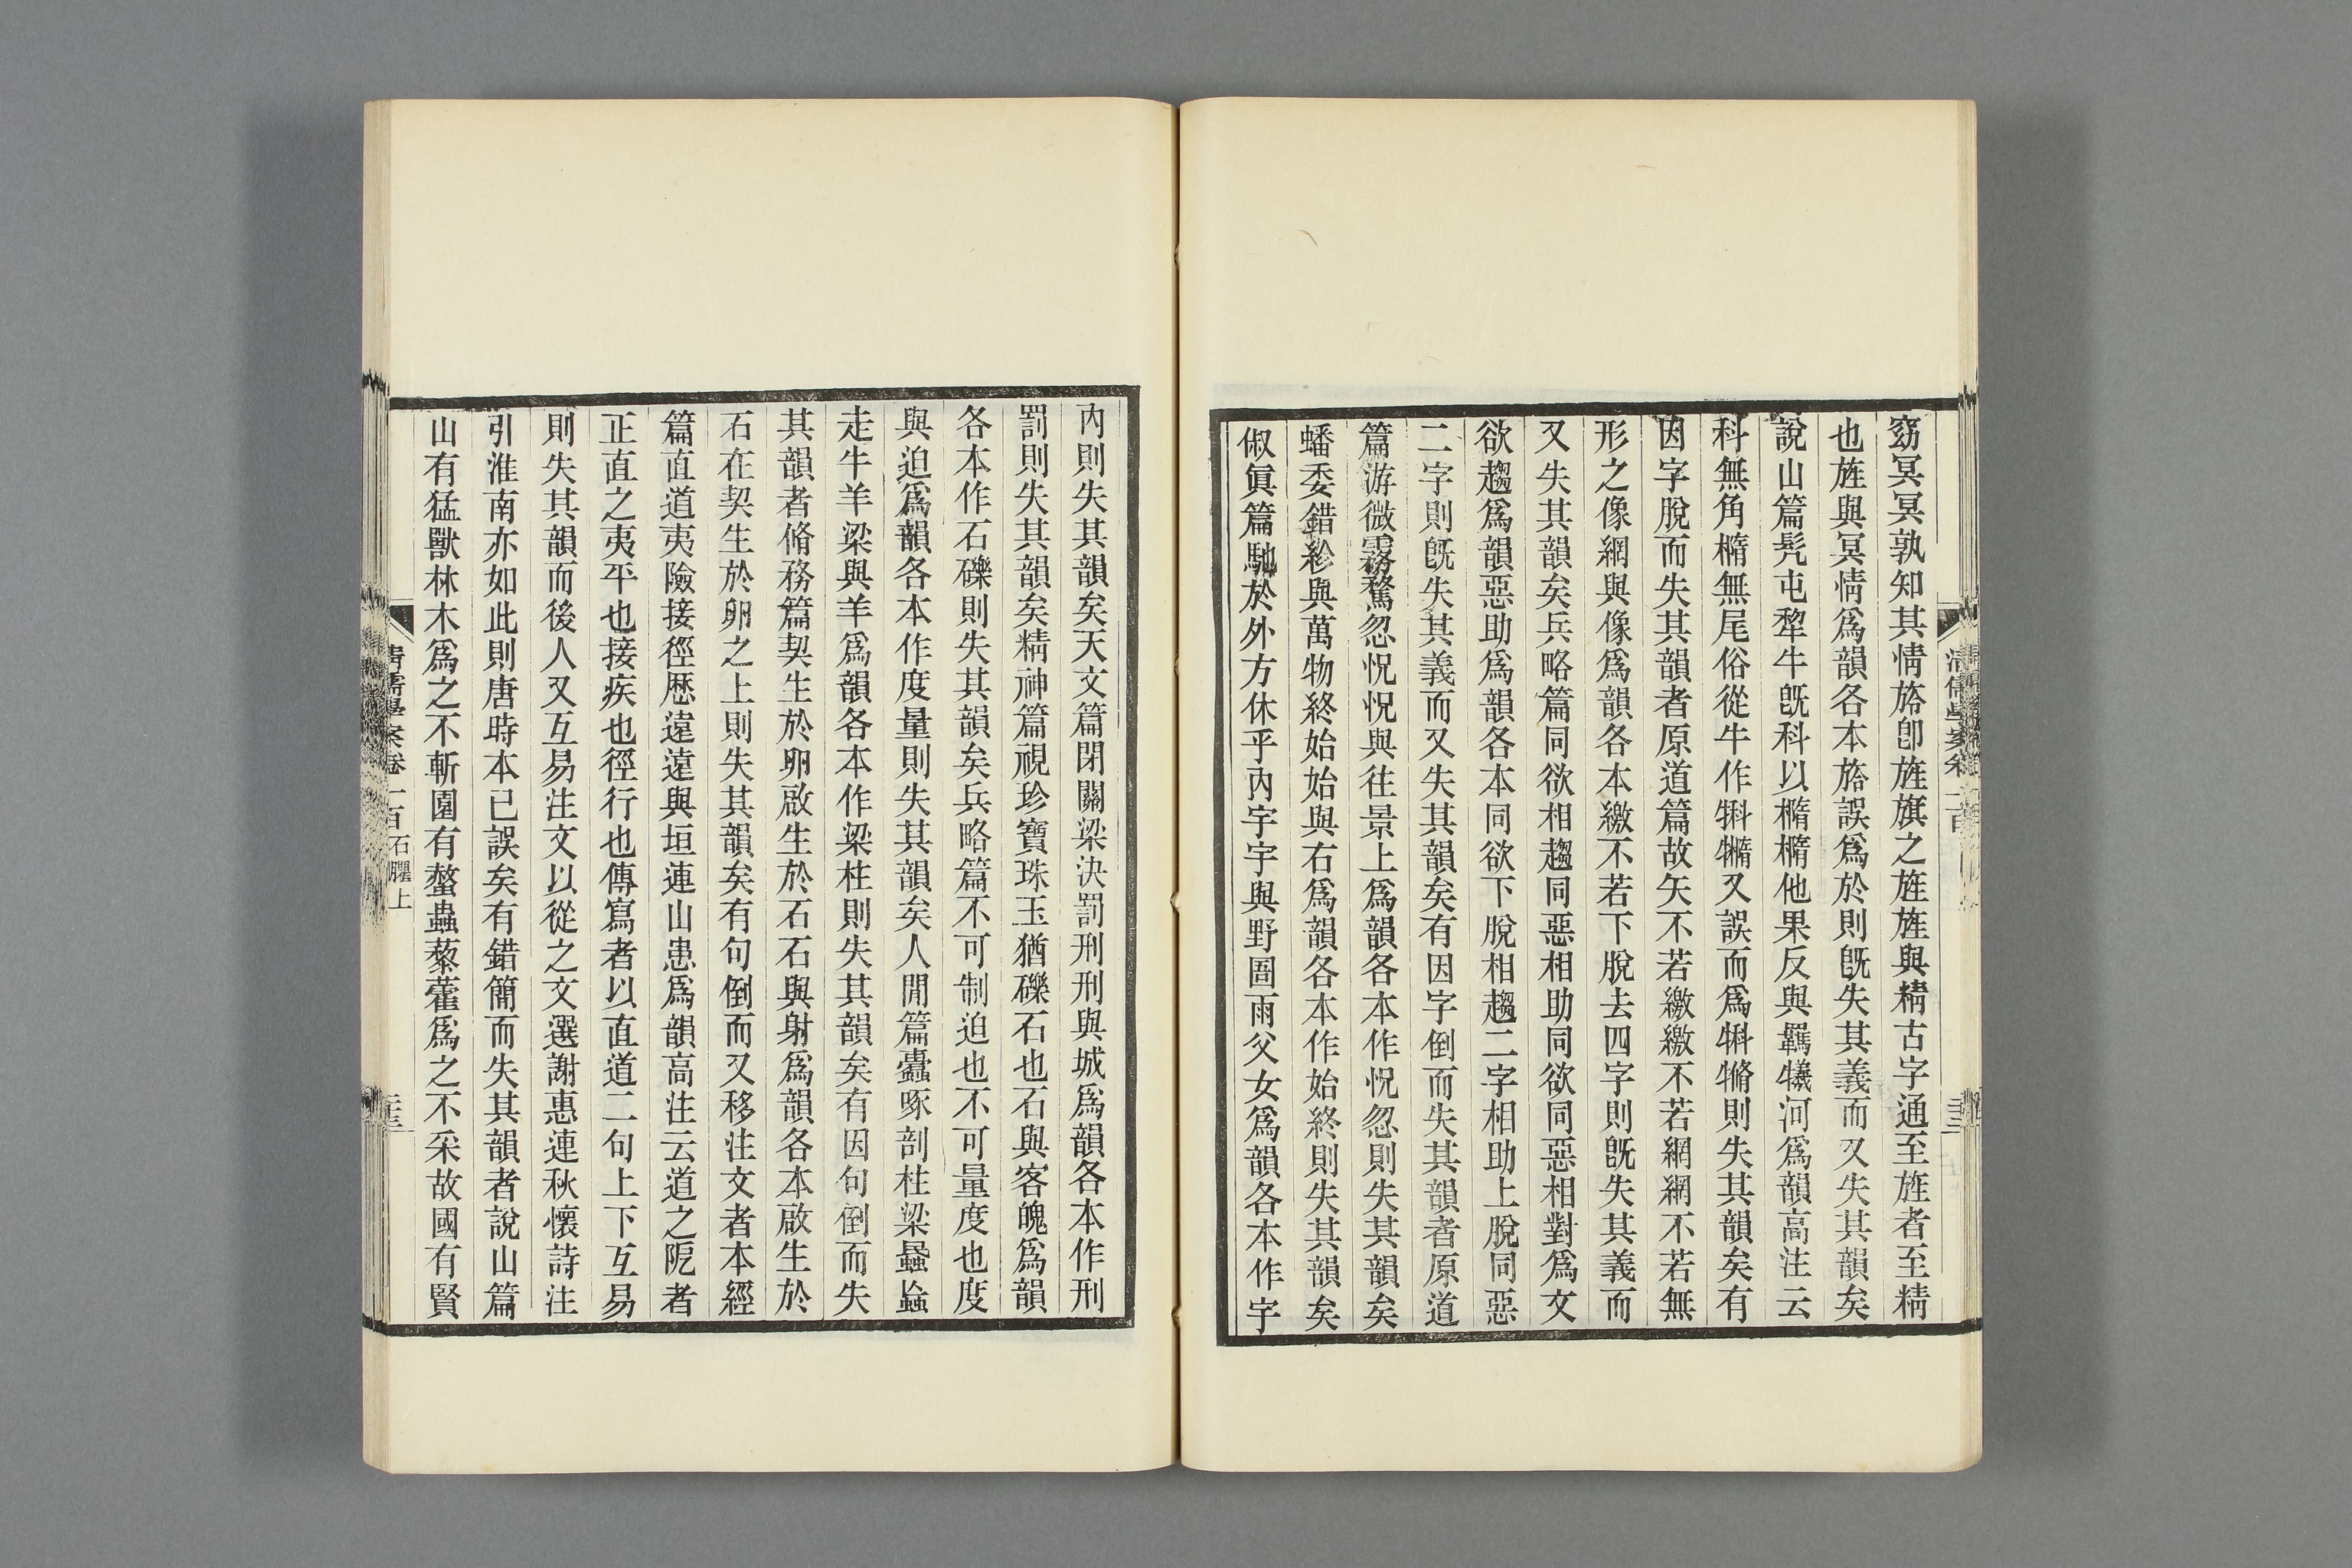 窈冥冥孰知其情旍卽旌旗之旌旌與精古字通至旌者至精
也旌與冥情爲韻各本旍誤爲於則旣失其義而又失其韻矣
說山篇髠屯犂牛旣科以橢橢他果反與羈犧河爲韻高注云
科無角橢無尾俗從牛作犐𤛛又誤而爲犐㸌則失其韻矣有
因字脫而失其韻者原道篇故矢不若繳繳不若網網不若無
形之像網與像爲韻各本繳不若下脫去四字則旣失其義而
又失其韻矣兵略篇同欲相趨同惡相助同欲同惡相對爲文
欲趨爲韻惡助爲韻各本同欲下脫相趨二字相助上脫同惡
二字則旣失其義而又失其韻矣有因字倒而失其韻者原道
篇游微霧騖忽怳怳與往景上爲韻各本作怳忽則失其韻矣
蟠委錯紾與萬物終始始與右爲韻各本作始終則失其韻矣
俶眞篇馳於外方休乎內宇宇與野圄雨父女爲韻各本作宇
內則失其韻矣天文篇閉關梁決罰刑刑與城爲韻各本作刑
罰則失其韻矣精神篇視珍寶珠玉猶礫石也石與客魄爲韻
各本作石礫則失其韻矣兵略篇不可制迫也不可量度也度
與迫爲韻各本作度量則失其韻矣人閒篇蠹啄剖柱梁蟁蝱
走牛羊梁與羊爲韻各本作梁柱則失其韻矣有因句倒而失
其韻者脩務篇契生於卵啟生於石石與射爲韻各本啟生於
石在契生於卵之上則失其韻矣有句倒而又移注文者本經
篇直道夷險接徑歷遠遠與垣連山患爲韻高注云道之阨者
正直之夷平也接疾也徑行也傳寫者以直道二句上下互易
則失其韻而後人又互易注文以從之文選謝惠連秋懷詩注
引淮南亦如此則唐時本已誤矣有錯簡而失其韻者說山篇
山有猛獸林木爲之不斬園有螫蟲藜藿爲之不采故國有賢
清儒學案卷一百 石臞上